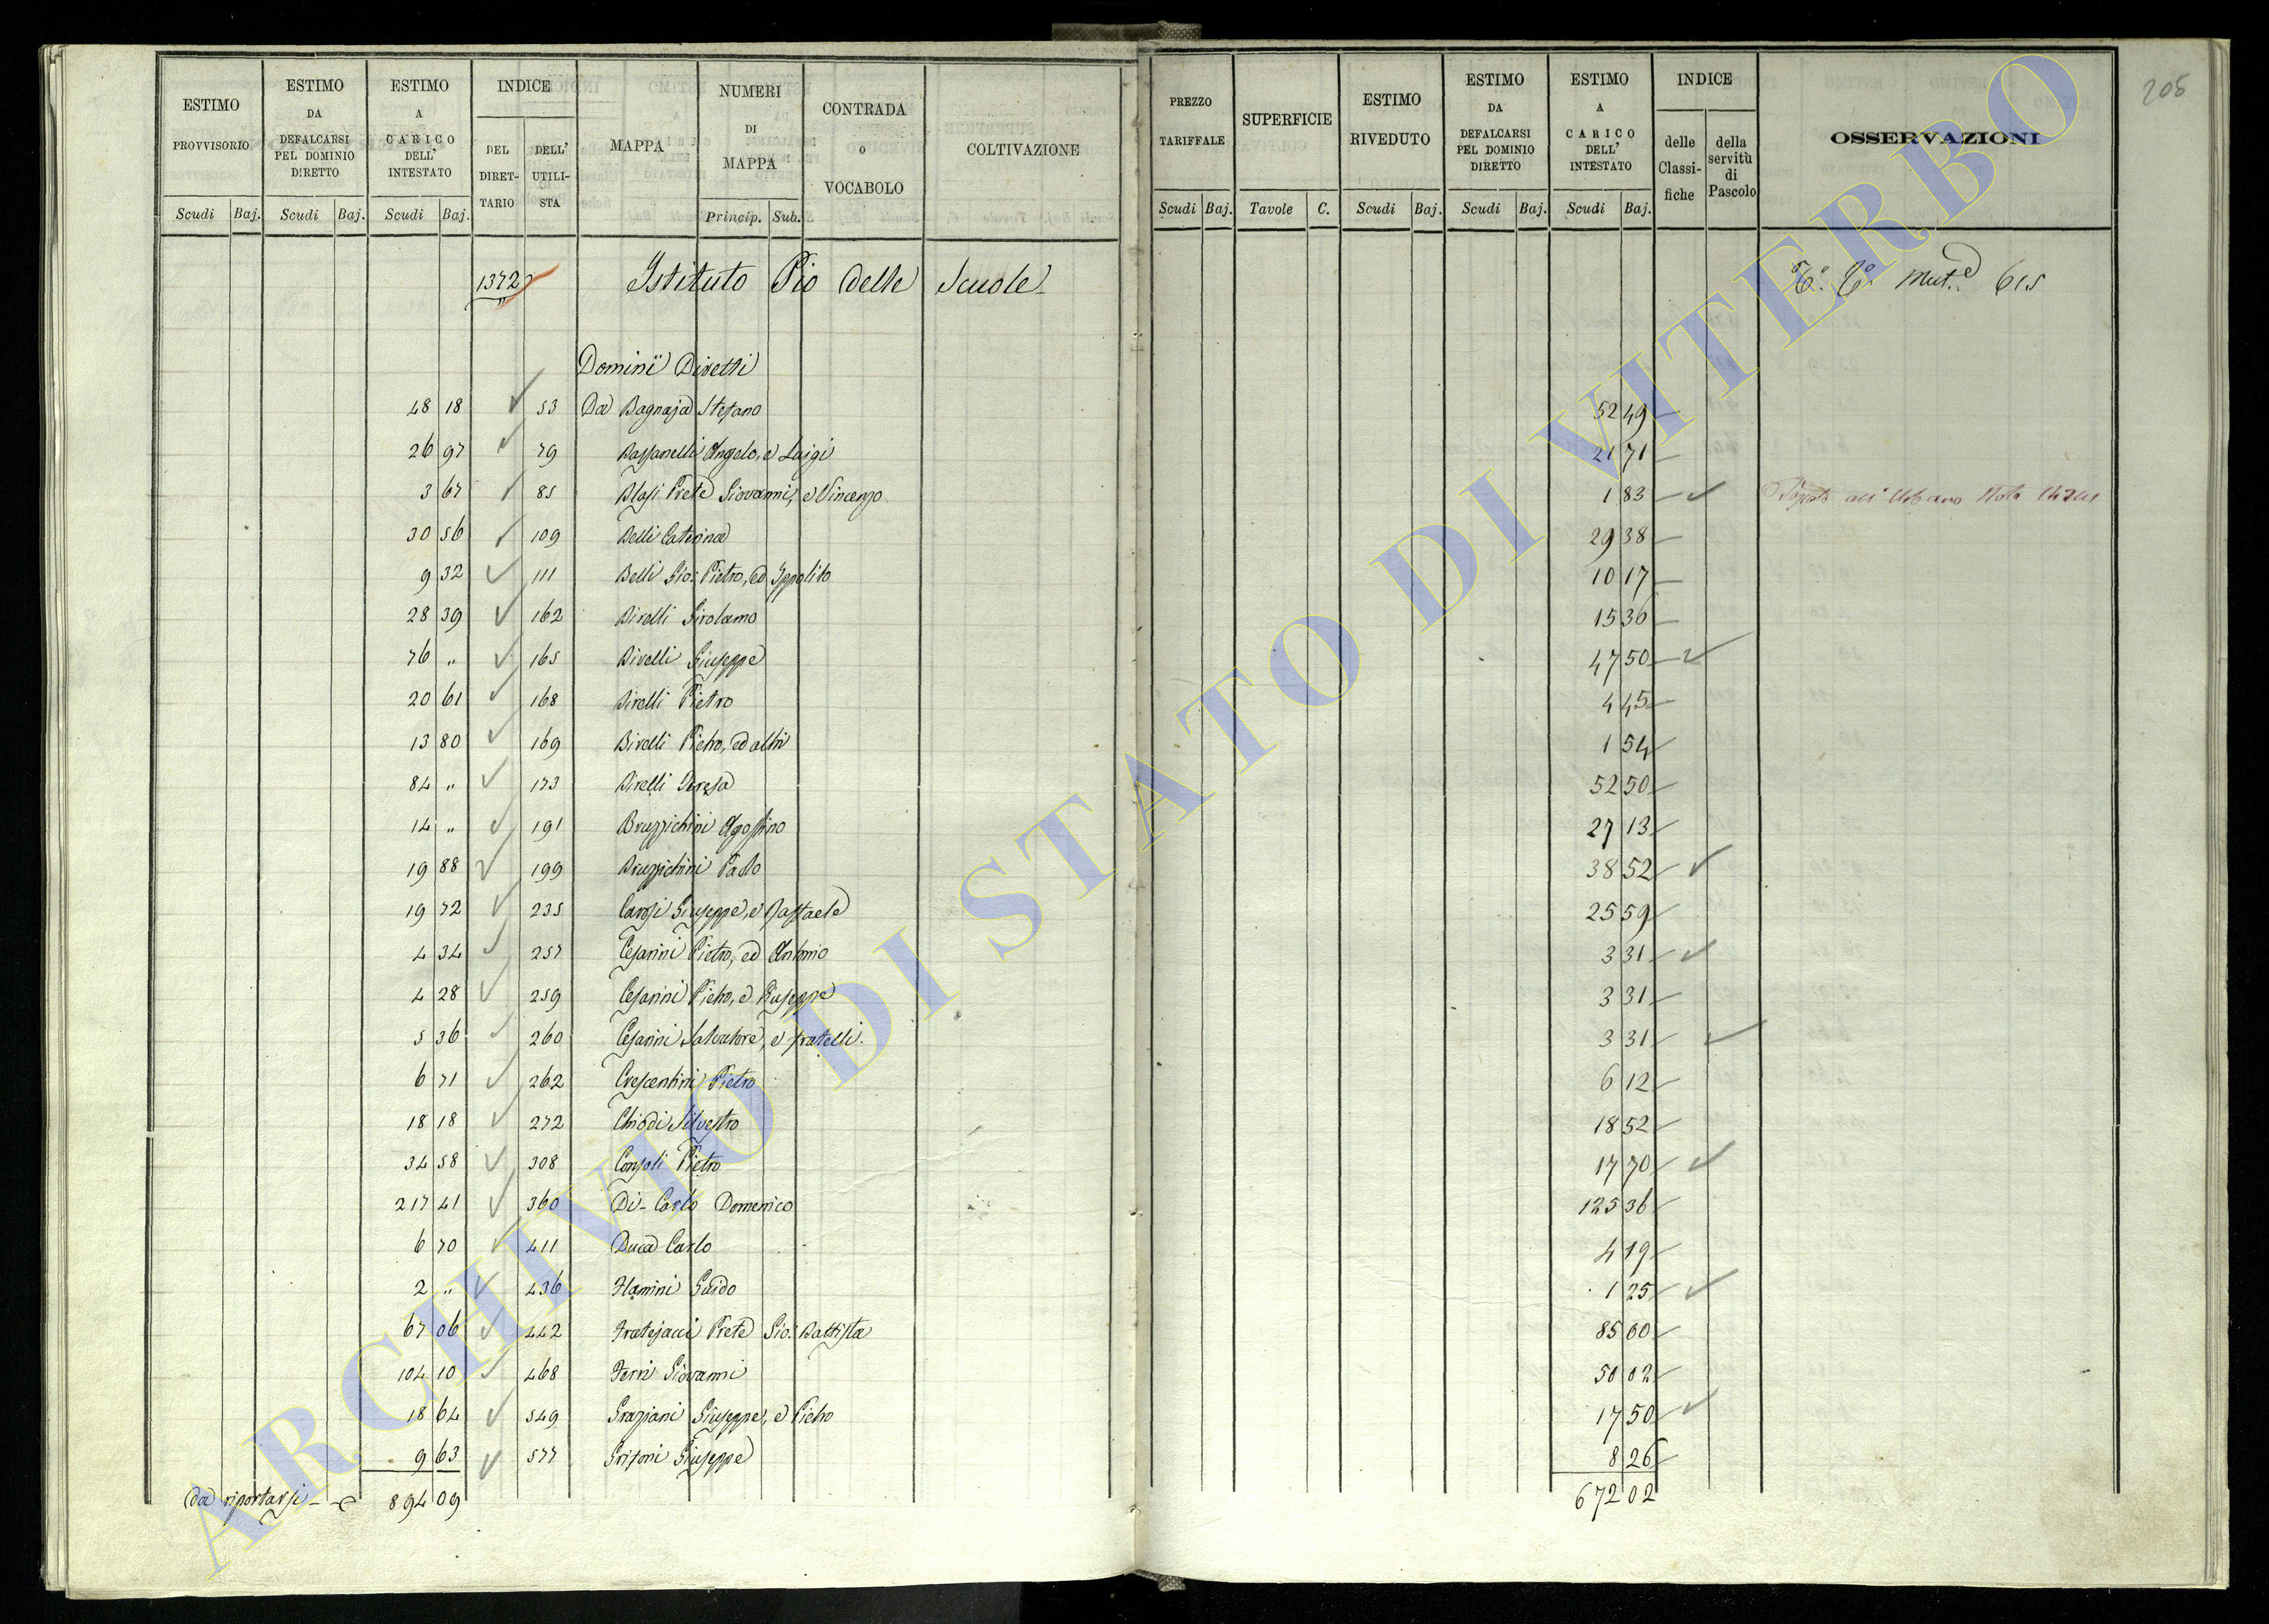 ESTIMO PROVVISORIO
ESTIMO DA DEFALCARSI PEL DOMINIO DIRETTO
ESTIMO A CARICO DELL' INTESTATO
INDICE
DEL DIRETTARIO
DELL' UTILISTA
MAPPA
NUMERI DI MAPPA
CONTRADA o VOCABOLO
COLTIVAZIONE
Scudi Baj. Scudi Baj. Scudi Baj. Princip. Sub.
PREZZO TARIFFALE
SUPERFICIE
ESTIMO RIVEDUTO
ESTIMO DA DEFALCARSI PEL DOMINIO DIRETTO
ESTIMO A CARICO DELL' INTESTATO
INDICE
delle Classifiche
della servitù di Pascolo
OSSERVAZIONI
208
Scudi Baj. Tavole C. Scudi Baj. Scudi Baj. Scudi Baj.
1372 Istituto Pio delle Scuole
Dominii Diretti
48 18 53 Da Bagnaja Stefano 52 49
26 97 79 Bassanelli Angelo, e Luigi 21 71
3 67 85 Blasi Prete Giovanni, e Vincenzo 1 83
30 56 109 Belli Caterina 29 38
9 32 111 Belli Gio: Pietro, ed Ippolito 10 17
28 39 162 Birelli Girolamo 15 36
76 " 165 Birelli Giuseppe 47 50
20 61 168 Birelli Pietro 4 45
13 80 169 Birelli Pietro, ed altri 1 54
84 " 173 Birelli Teresa 52 50
14 " 191 Bruzzichini Agostino 27 13
19 88 199 Bruzzichini Paolo 38 52
19 72 235 Carosi Giuseppe, e Raffaele 25 59
4 34 257 Cesarini Pietro, ed Antonio 3 31
4 28 259 Cesarini Pietro, e Giuseppe 3 31
5 36 260 Cesarini Salvatore, e fratelli. 3 31
6 71 262 Crescentini Pietro 6 12
18 18 272 Chiodi Silvestro 18 52
34 58 308 Consoli Pietro 17 70
217 41 360 Di-Carlo Domenico 125 36
6 70 411 Duca Carlo 4 19
2 " 436 Flamini Guido 1 25
67 06 442 Fratejacci Prete Gio: Battista 85 60
104 10 468 Ferri Giovanni 50 02
18 64 549 Graziani Giuseppe, e Pietro 17 50
9 63 577 Grifoni Giuseppe 8 26
da riportarsi 894 09 672 02
ARCHIVIO DI STATO DI VITERBO